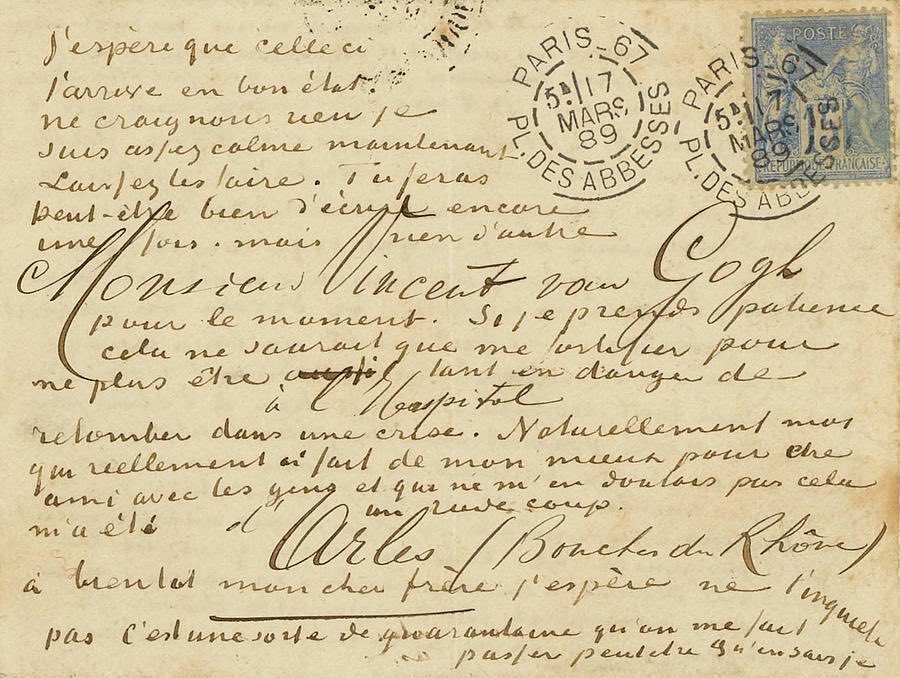 J'espère que celle ci
t'arrive en bon état.
ne craignons rien je
suis assez calme maintenant.
Laissez les faire. Tu feras
peut-être bien d'écrire encore
une fois. mais rien d'autre
Monsieur Vincent van Gogh
pour le moment. Si je prends patience
cela ne saurait que me fortifier pour
ne plus être aussi tant en danger de
à l'Hospital
retomber dans une crise. Naturellement moi
qui reellement ai fait de mon mieux pour être
ami avec les gens et qui ne m'en doutais pas cela
m'a été un rude coup.
d'Arles (Bouches du Rhône)
à bientot mon cher frère j'espère ne t'inquiete
pas c'est une sorte de quarantaine qu'on me fait
passer peut etre qu'en sais je
PARIS_67
5E/17
MARS
89
PL. DES ABBESSES
PARIS_67
5E/17
MARS
89
PL. DES ABBESSES
POSTE
REPUBLIQUE FRANÇAISE